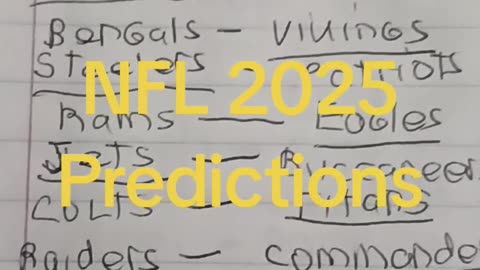 Bengals - Vikings
Steelers Patriots
NFL 2025
Rams — Eagles
Jets —
Predictions
Colts — Titans
Raiders — Commande